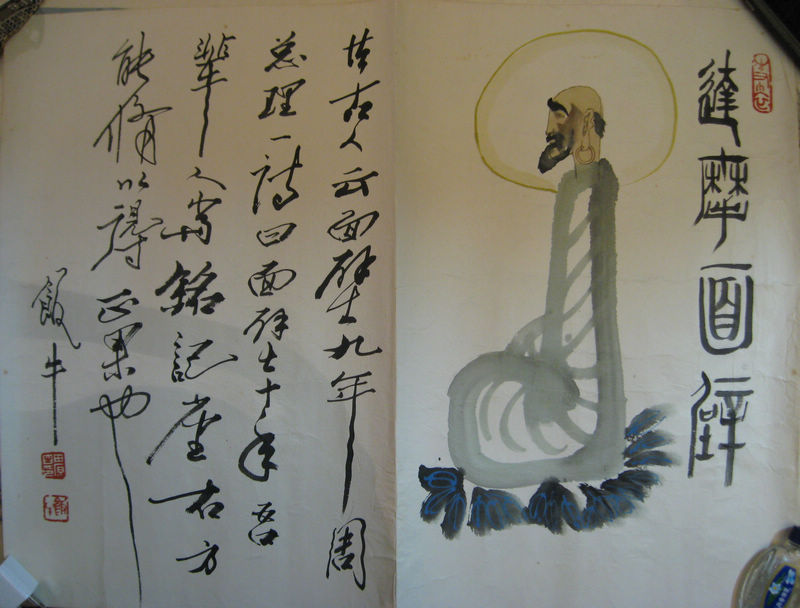 達摩面壁
古人云面壁九年周
总理一詩曰面壁十年吾
輩人當銘記座右方
能脩以得正果也
飯牛